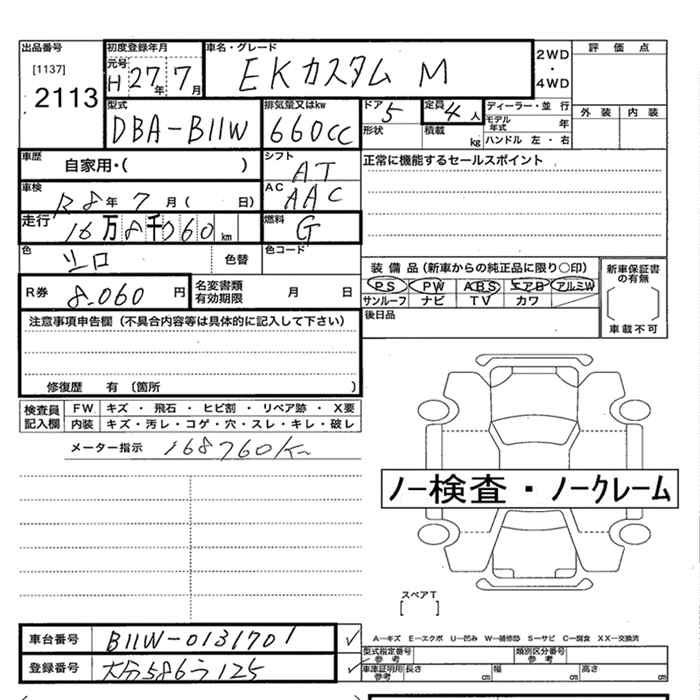 出品番号 初度登録年月 車名・グレード 2WD ・ 4WD 評価点
[1137] 元号 H 27年 7月 EKカスタム M 外装 内装
2113
型式 排気量又はkw ドア 定員 ディーラー・並行
DBA-B11W 660cc 5 4人 モデル年式 年
形状 積載 kg ハンドル 左・右
車歴 自家用・( ) シフト AT 正常に機能するセールスポイント
車検 R8年 7月( 日) AC AAC
走行 16万8千760km 燃料 G
色 シロ 色替 色コード 装備品(新車からの純正品に限り○印) 新車保証書の有無
R券 8.060円 名変書類有効期限 月 日 PS PW ABS エアB アルミW
サンルーフ ナビ TV カワ
車載不可
注意事項申告欄(不具合内容等は具体的に記入して下さい) 後日品
修復歴 有(箇所 )
検査員記入欄 FW. キズ・飛石・ヒビ割・リペア跡・X要
内装 キズ・汚レ・コゲ・穴・スレ・キレ・破レ
メーター指示 168760K
ノー検査・ノークレーム
スペアT
[ ]
A―キズ E―エクボ U―凹み W―補修跡 S―サビ C―腐食 XX―交換済
車台番号 B11W-0131701 ✓ 型式指定番号 参考 類別区分番号 参考
登録番号 大分586う125 ✓ 車庫証明用参考 長さ cm 幅 cm 高さ cm